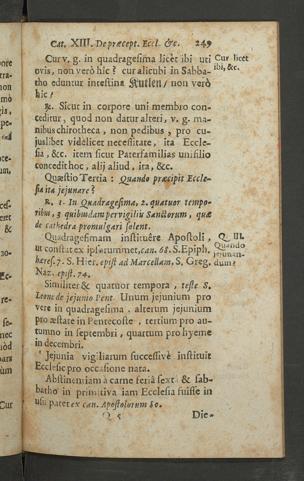 Cat. XIII. De præcept. Eccl. &c. 249
Cur v. g. in quadragesima licèt ibi uti
ovis, non verò hîc? cur alicubi in Sabba-
tho eduntur intestina Kutlen/ non verò
hîc/
℞. Sicut in corpore uni membro con-
ceditur, quod non datur alteri, v. g. ma-
nibus chirotheca, non pedibus, pro cu-
juslibet videlicet necessitate, ita Eccle-
sia, &c. item sicut Paterfamilias uni filio
concedit hoc, alij aliud, ita, &c.
Quæstio Tertia: Quando præcipit Eccle-
sia ita jejunare?
R. 1. In Quadragesima, 2. quatuor tempo-
ribus, 3 quibusdam pervigiliis Sanctorum, quæ
de cathedra promulgari solent.
Quadragesimam instituêre Apostoli,
ut constat ex ipsorum met, can. 68. S. Epiph.
hæres. 7. S. Hier. epist ad Marcellam, S. Greg.
Naz. epist. 74.
Similiter & quatuor tempora, teste S.
Leone de jejunio Pent. Unum jejunium pro
vere in quadragesima, alterum jejunium
pro æstate in Pentecoste, tertium pro au-
tumno in septembri, quartum pro hyeme
in decembri.
Jejunia vigiliarum successivè instituit
Ecclesie pro occasione nata.
Abstinentiam à carne feriâ sextâ & sab-
batho in primitiva jam Ecclesia fuisse in
usu patet ex can. Apostolorum 80.
Q 5 Die-
Cur licet
ibi, &c.
Q. III.
Quando
jejunan-
dum?